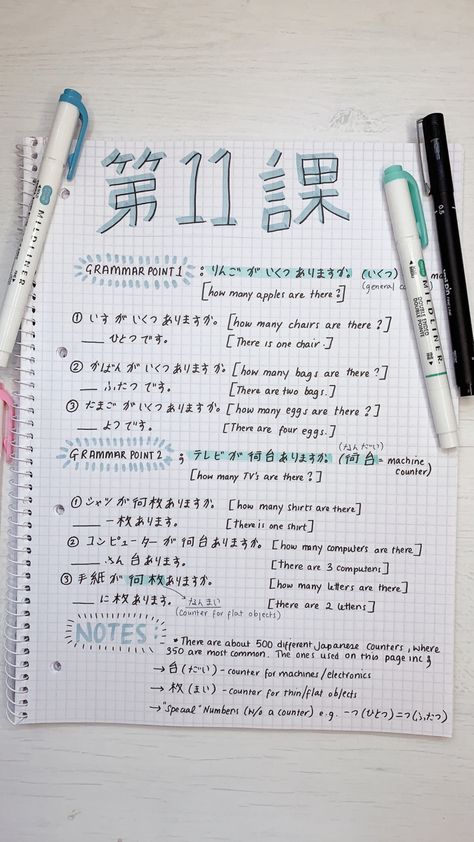 第11課
GRAMMAR POINT 1 : りんごがいくつありますか。(いくつ)
(general co
[how many apples are there?]
① いすがいくつありますか。[how many chairs are there?]
___ ひとつです。 [There is one chair.]
② かばんがいくつありますか。[how many bags are there?]
___ ふたつです。 [There are two bags.]
③ たまごがいくつありますか。[how many eggs are there?]
___ よつです。 [There are four eggs.]
(なんだい)
GRAMMAR POINT 2 ; テレビが何台ありますか。(何台 = machine counter)
[how many TV's are there?]
① シャツが何枚ありますか。[how many shirts are there]
___ 一枚あります。 [there is one shirt]
② コンピューターが何台ありますか。[how many computers are there]
___ さん台あります。 [There are 3 computers]
③ 手紙が何枚ありますか。 [how many letters are there]
___ に枚あります。 なんまい [there are 2 letters]
(counter for flat objects)
NOTES:
* There are about 500 different Japanese counters, where
350 are most common. The ones used on this page inc;
→ 台(だい) - counter for machines/electronics
→ 枚(まい) - counter for thin/flat objects
→ "special" Numbers (w/o a counter) e.g. 一つ(ひとつ) 二つ(ふたつ)
MILDLINER
MILDLINER
DOUBLE ENDED
DOUBLE POINTE
0.5